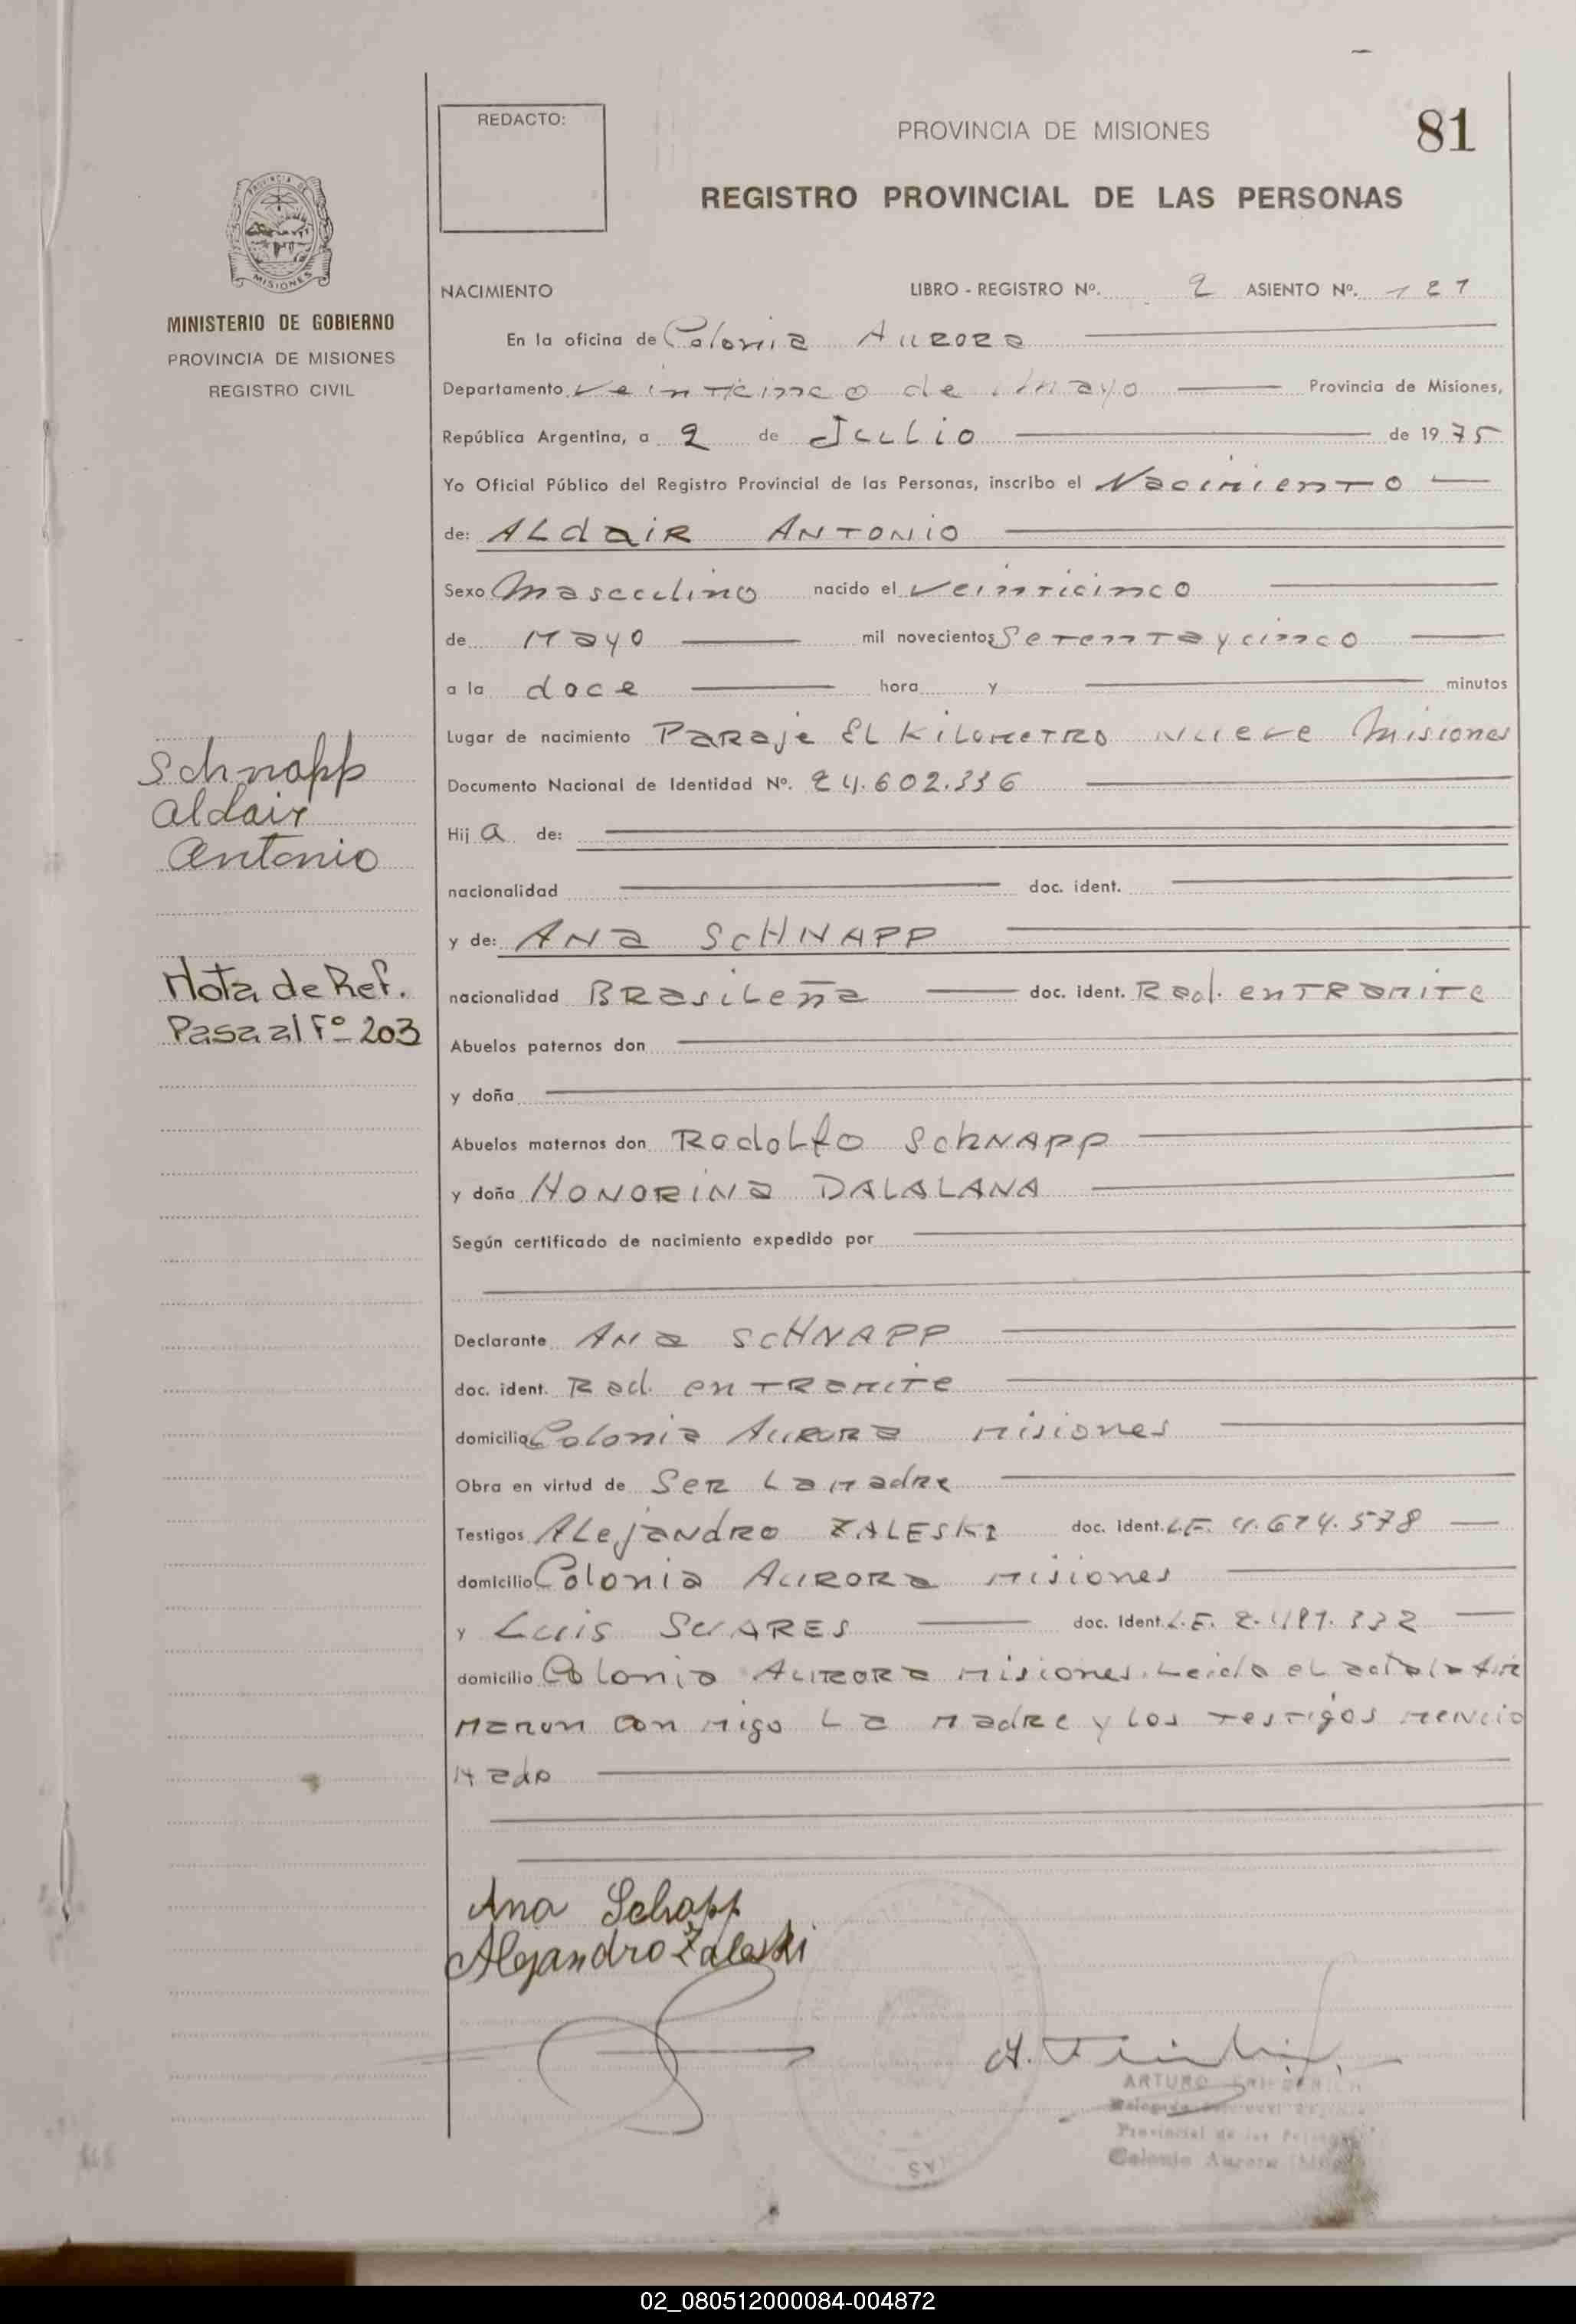 81
REDACTO:
PROVINCIA DE MISIONES
REGISTRO PROVINCIAL DE LAS PERSONAS
PROVINCIA DE
MISIONES
MINISTERIO DE GOBIERNO
PROVINCIA DE MISIONES
REGISTRO CIVIL
NACIMIENTO LIBRO - REGISTRO Nº. 2 ASIENTO Nº. 121
En la oficina de Colonia Aurora
Departamento Veinticinco de Mayo Provincia de Misiones,
República Argentina, a 2 de Julio de 1975
Yo Oficial Público del Registro Provincial de las Personas, inscribo el Nacimiento
de: ALdaiR ANTONIO
Sexo Masculino nacido el veinticinco
de Mayo mil novecientos Setenta y cinco
a la doce hora y minutos
Lugar de nacimiento Paraje El Kilometro Nueve Misiones
Documento Nacional de Identidad Nº. 24.602.336
Hij a de:
nacionalidad doc. ident.
y de: ANa SCHNAPP
nacionalidad Brasileña doc. ident. Rad. en Tramite
Abuelos paternos don
y doña
Abuelos maternos don Rodolfo SchNAPP
y doña HONORINa DALALANA
Según certificado de nacimiento expedido por
Declarante ANa SCHNAPP
doc. ident. Rad. en Tramite
domicilio Colonia Aurora Misiones
Obra en virtud de Ser La Madre
Testigos Alejandro ZALESKI doc. ident. L.E. 4.674.578
domicilio Colonia Aurora Misiones
y Luis SUARES doc. Ident. L.E.
domicilio Colonia Aurora Misiones. Leida el acta la fir
maron con migo La Madre y los testigos mencio
Nado
Schnapp
Aldair
Antonio
Nota de Ref.
Pasa al Fº 203
Ana Schapp
Alejandro Zaleski
ARTURO
Provincial de las
Colonia Aurora
02_080512000084-004872